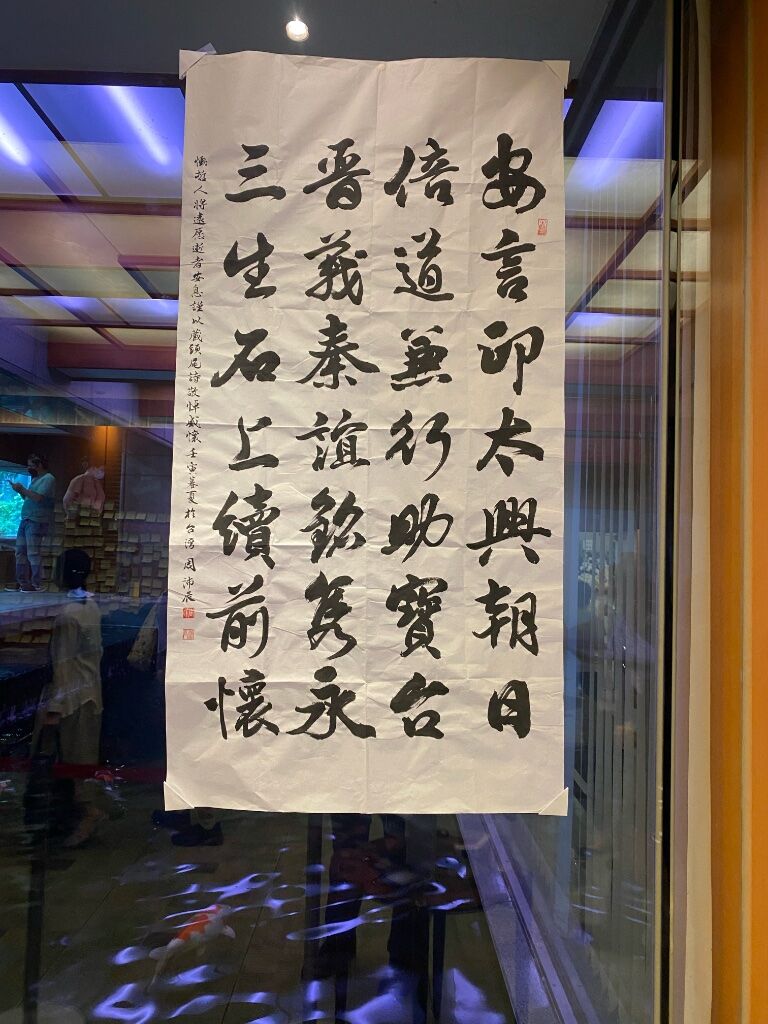 安言印太興朝日
倍道兼行助寶台
晉義秦誼銘雋永
三生石上續前懷
慟哲人將遠愿逝者安息謹以藏頭尾詩敬悼感懷壬寅暮夏於台灣周沛辰